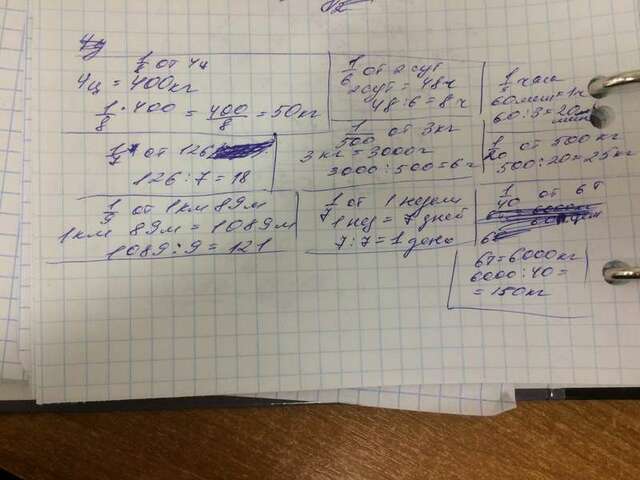 1/8 от 4ц
4ц = 400кг
1/8 · 400 = 400/8 = 50кг
1/6 от 2 сут
2сут = 48ч
48:6 = 8ч
часа
60мин = 1ч
60:3 = 20
мин
1/7 от 126
126:7 = 18
1/500 от 3кг
3кг = 3000г
3000:500 = 6г
1/20 от 500 кг
500:20 = 25кг
1/9 от 1км 89м
1км 89м = 1089м
1089:9 = 121
1/7 от 1 недели
1нед = 7 дней
7:7 = 1 день
1/40 от 6т
6т = 6000кг
6000:40 =
= 150кг